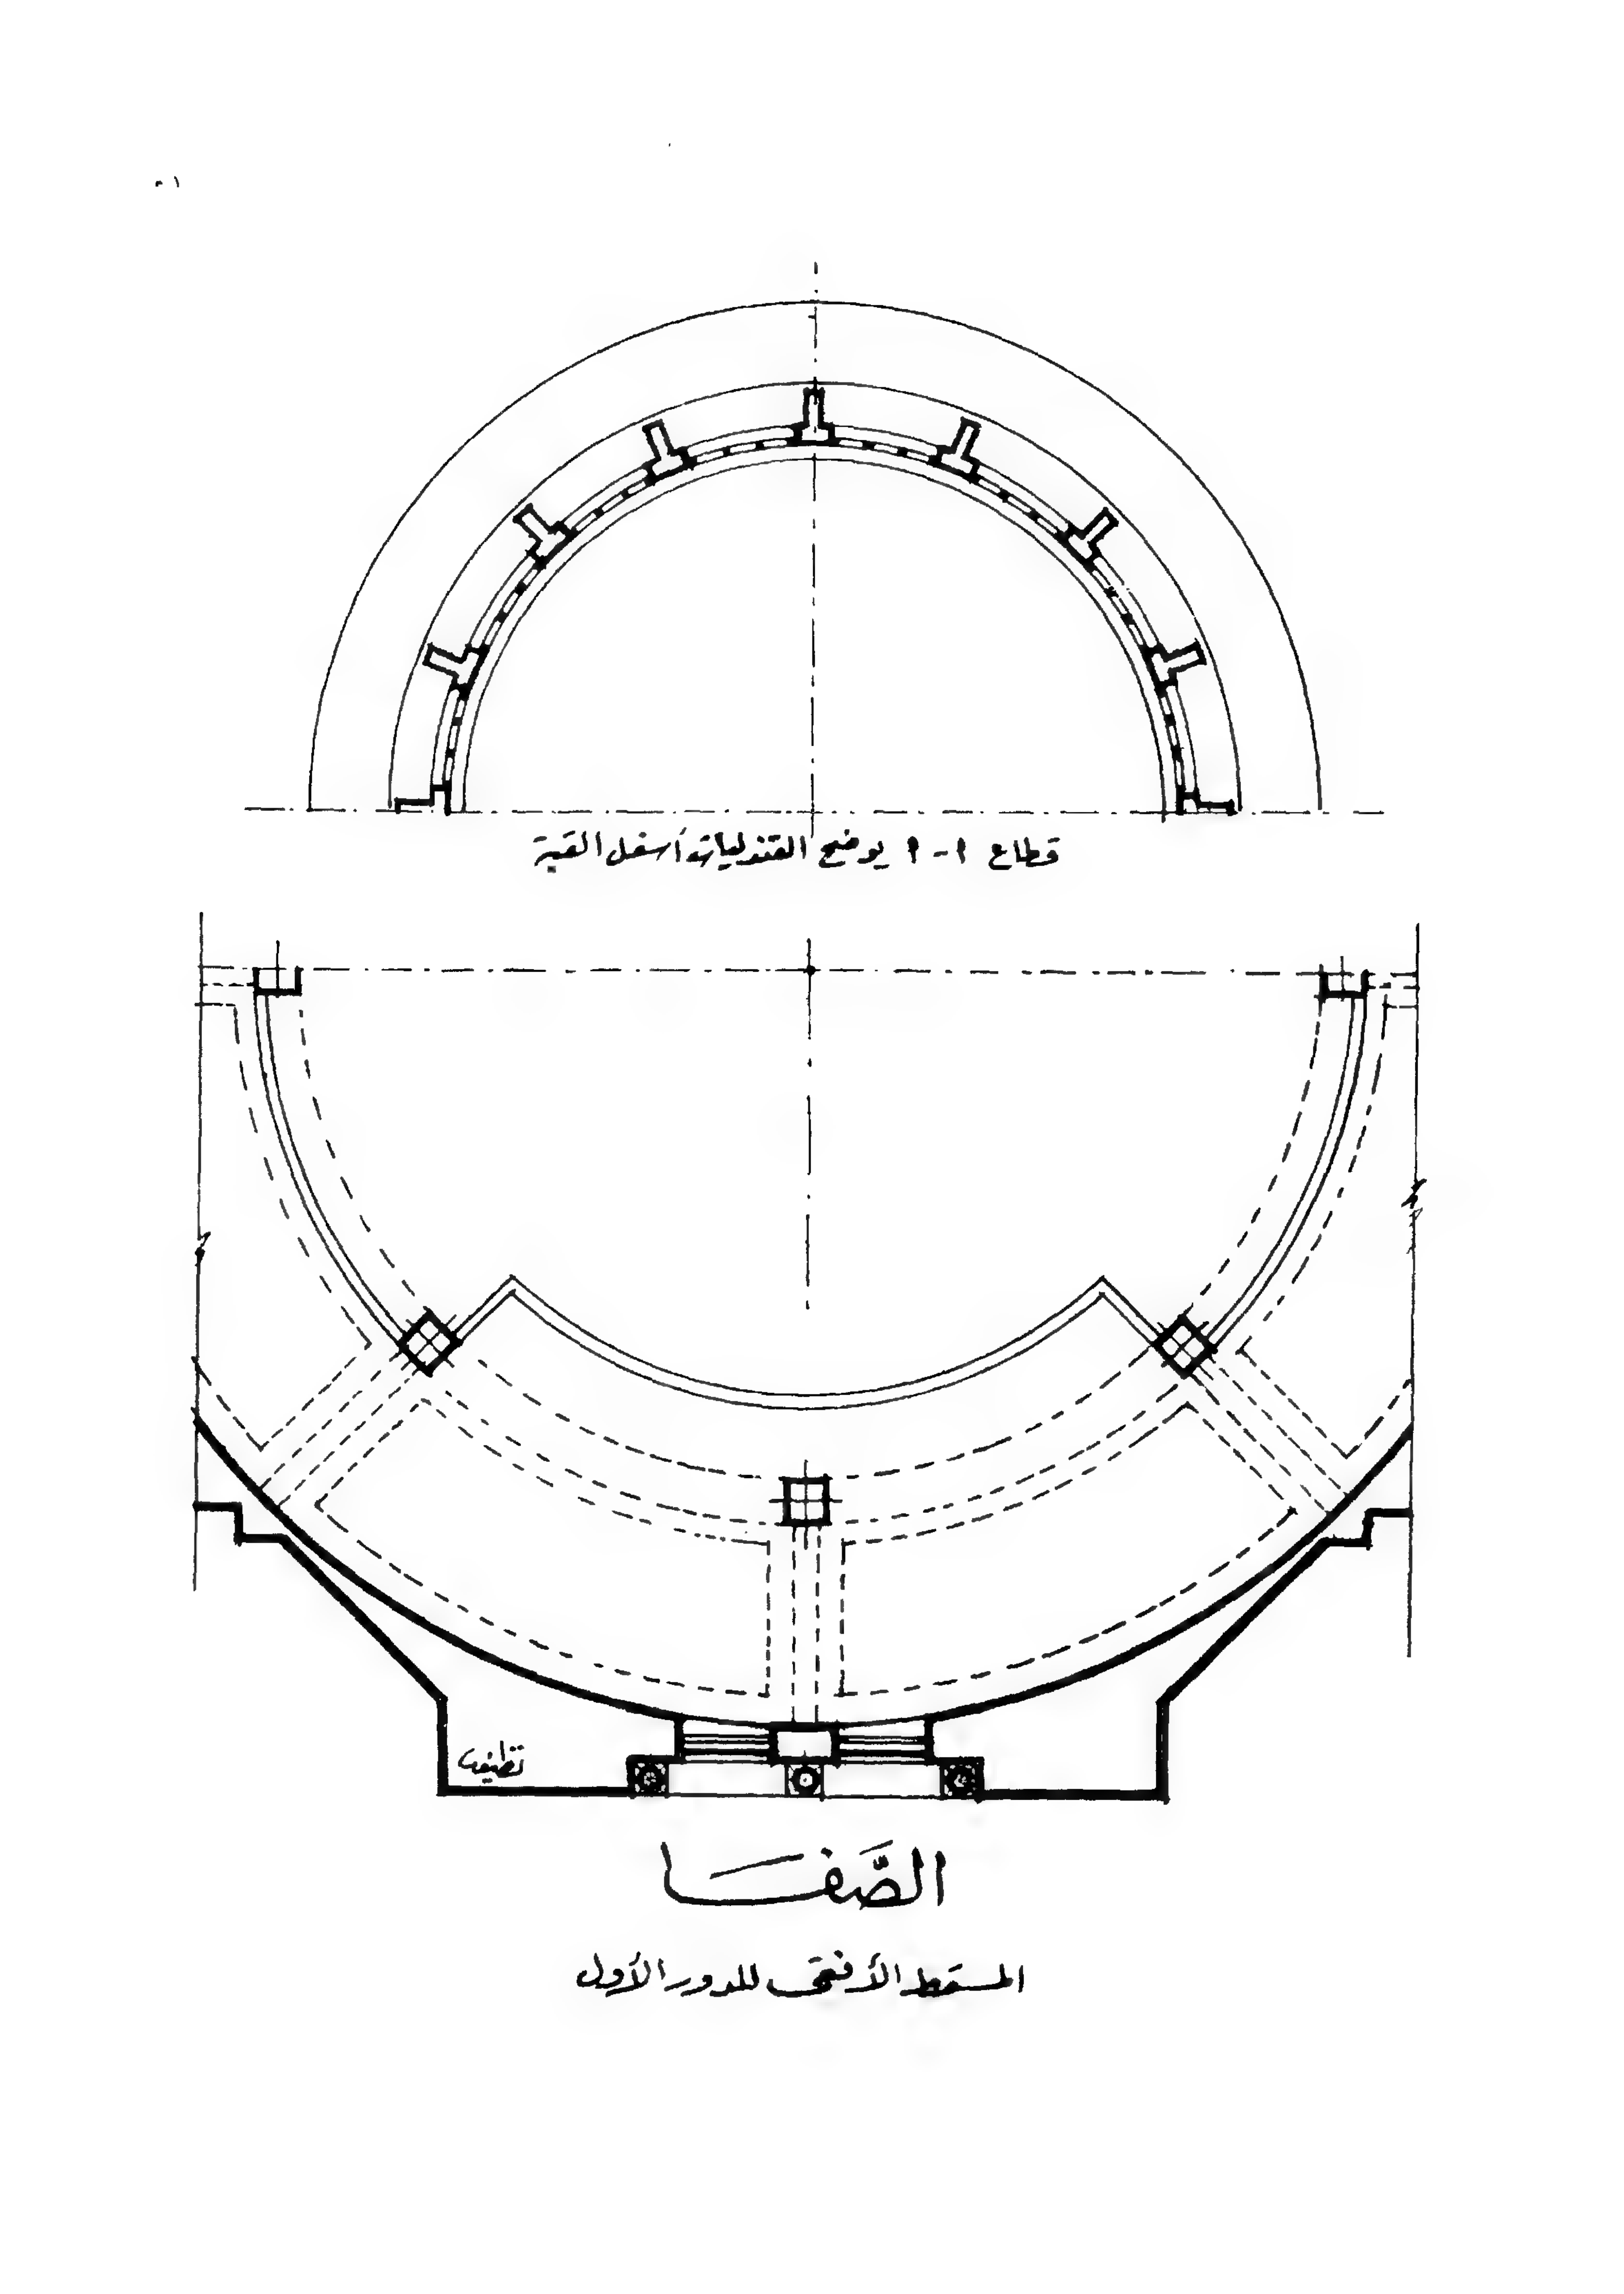 قطاع ا - ا يوضح القندليات أسفل القبة
تظيف
الصَّفَا
المسقط الأفقى للدور الأول